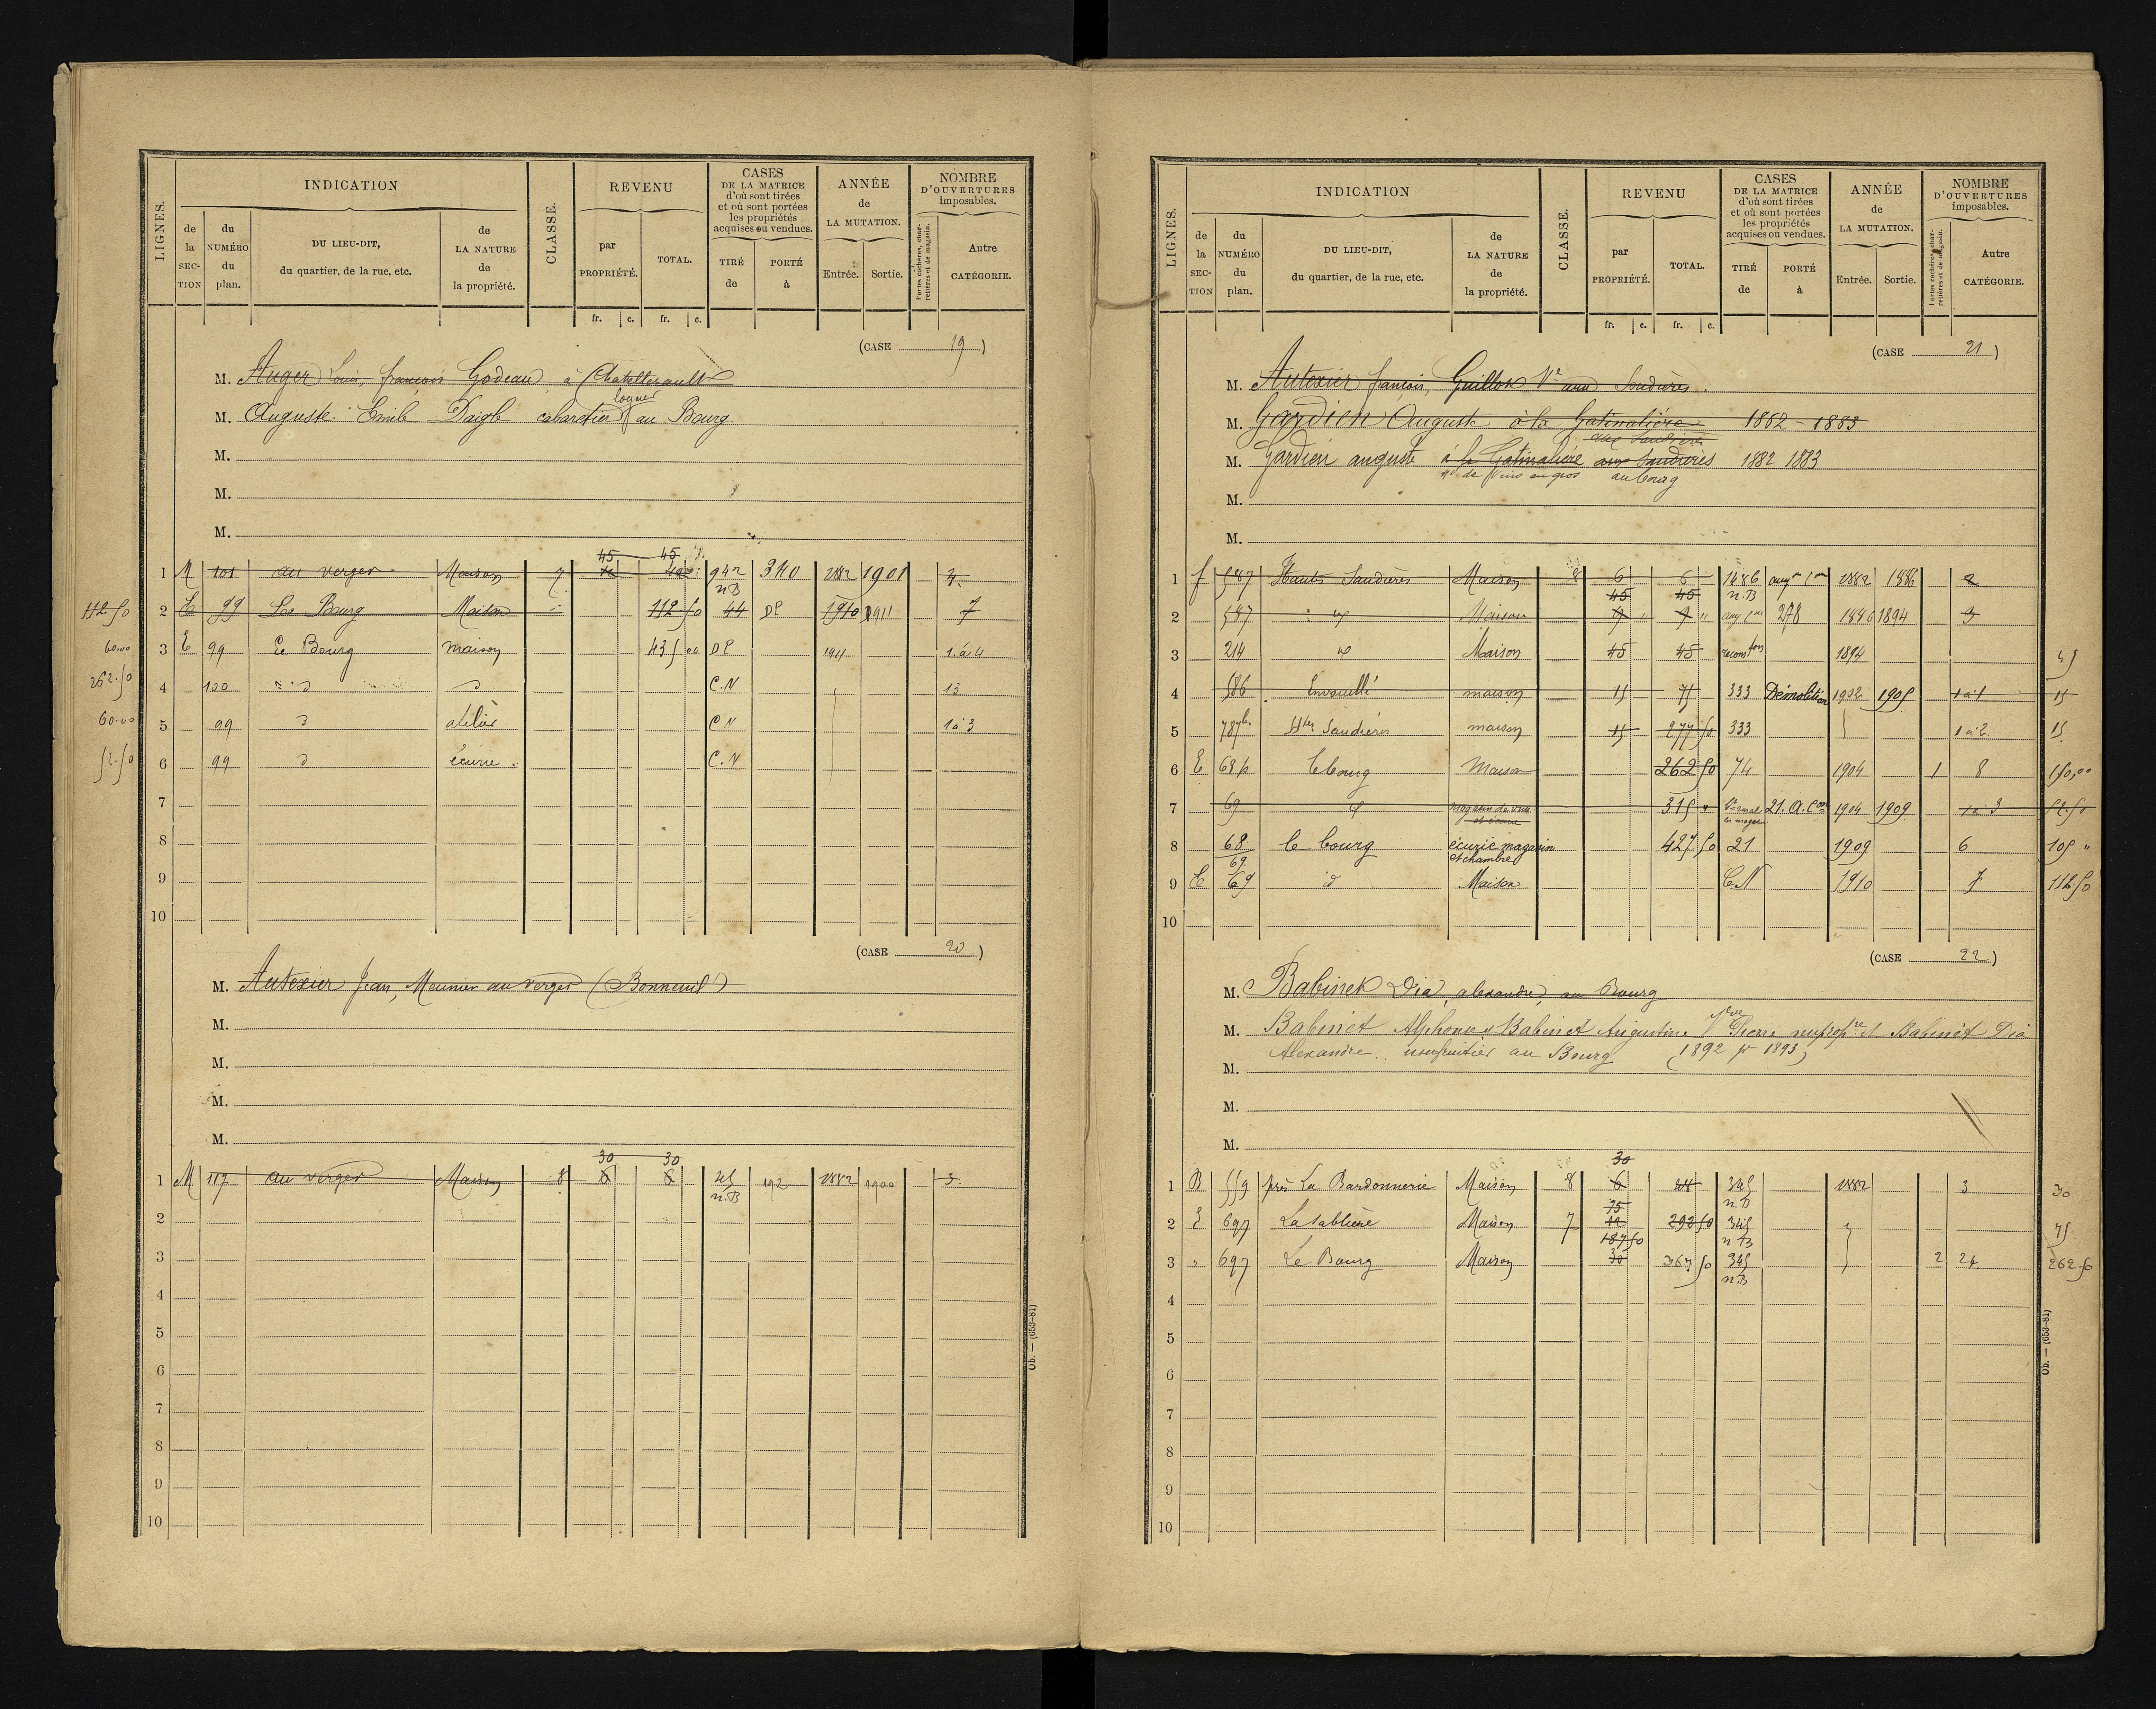 LIGNES. INDICATION CLASSE. REVENU CASES DE LA MATRICE d'où sont tirées et où sont portées les propriétés acquises ou vendues. ANNÉE de LA MUTATION. NOMBRE D'OUVERTURES imposables.
de la SECTION du NUMÉRO du plan. DU LIEU-DIT, du quartier, de la rue, etc. de LA NATURE de la propriété. par PROPRIÉTÉ. TOTAL. TIRÉ de PORTÉ à Entrée. Sortie. Portes cochères, charretières et de magasin. Autre CATÉGORIE.
fr. c. fr. c.
(CASE 19)
M. Auger Louis, françois Godeau à Chatellerault
M. Auguste Emile Daigle cabaretier logeur au Bourg
M.
M.
M.
45 45
1 M 101 au verger Maison 7 12 942 n.B 340 1882 1901 4
112.50 2 E 99 Le Bourg Maison 112 50 44 DP 1910 1911 7
60.00 3 E 99 Le Bourg maison 435 00 DP 1911 1 à 4
262.50 4 100 d d C.N 13
60.00 5 99 d atelier C N 1 à 3
52.50 6 99 d écurie C.N
7
8
9
10
(CASE 20)
M. Autexier Jean, Meunier au verger (Bonneuil)
M.
M.
M.
M.
30 30
1 M 117 au verger Maison 8 6 6 45 n.B 192 1882 1900 3.
2
3
4
5
6
7
8
9
10
Ob. — (653-81)
LIGNES. INDICATION CLASSE. REVENU CASES DE LA MATRICE d'où sont tirées et où sont portées les propriétés acquises ou vendues. ANNÉE de LA MUTATION. NOMBRE D'OUVERTURES imposables.
de la SECTION du NUMÉRO du plan. DU LIEU-DIT, du quartier, de la rue, etc. de LA NATURE de la propriété. par PROPRIÉTÉ. TOTAL. TIRÉ de PORTÉ à Entrée. Sortie. Portes cochères, charretières et de magasin. Autre CATÉGORIE.
fr. c. fr. c.
(CASE 21)
M. Autexier françois, Guillon Ve aux Soudières.
M. Gardien Auguste à la Gatinalière 1882 - 1883
aux Saudières
M. Gardien auguste à la Gatinalière aux Saudières 1882 1883
md de vins en gros au bourg
M.
M.
1 f 587 Hauts Saudières Maison 8 6 6 1486 n.B augm con 1882 1886 2
45 45
2 587 d Maison 9 " 9 " 278 1886 1894 3
3 214 d Maison 45 45 1894 45
4 586 maison 15 75 333 Démolition 1902 1905 1 à 1 15
5 787 Htes Saudières maison 15 277 50 333 1 à 2 15
6 E 68 p le bourg Maison 262 50 74 1904 1 8 150,00
7 69 d magasin de vins et écurie 315 " 21. A. Con 1904 1909 1 à 3 52.50
8 68 69 le bourg écurie magasin et chambre 427 50 21 1909 6 105 "
9 E 69 id Maison C.N 1910 7 112.50
10
(CASE 22)
M. Babinet Dia, alexandre, au Bourg
M. Babinet Alphonse & Babinet Augustine Pierre nupropre et Babinet Dia
Alexandre usufruitier au Bourg (1892 pr 1893)
M.
M.
M.
30
1 B 559 près La Bardonnerie Maison 8 6 48 345 n.B 1882 3 30
75
2 E 697 La sablière Maison 7 12 292 50 345 n B 75
187 50
3 " 697 Le Bourg Maison 30 367 50 345 n.B 2 24 262.50
4
5
6
7
8
9
10
Ob. — (653-81)